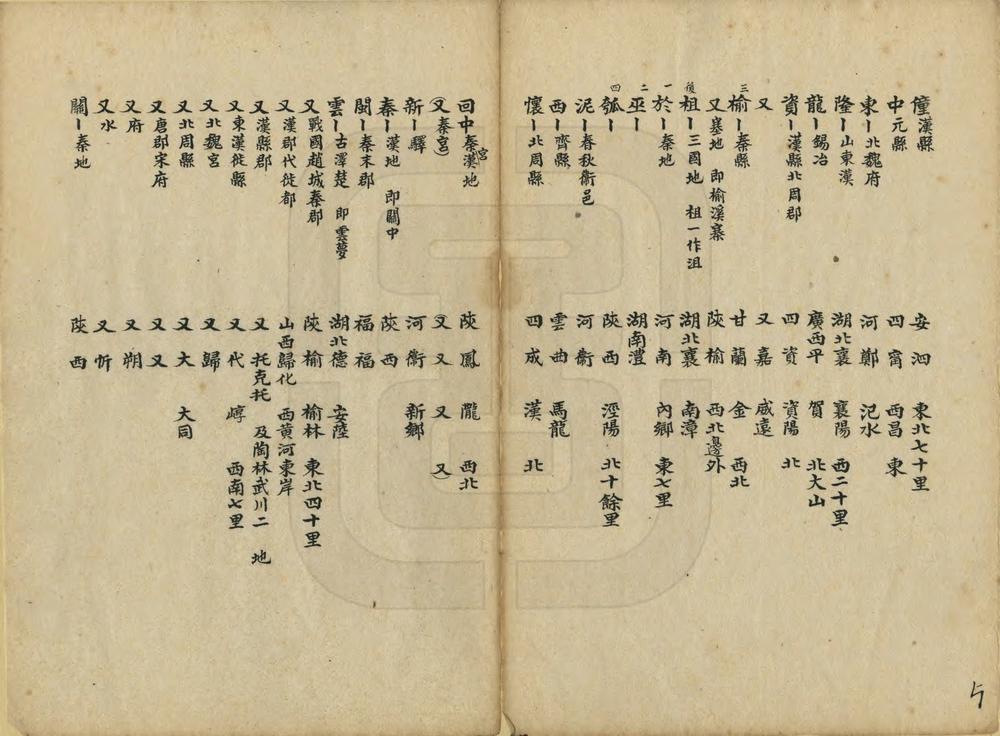 僮漢縣 安 泗 東北七十里
中元縣 四 甯 西昌 東
東〡北魏府 河 鄭 汜水
隆〡山東漢 湖北襄 襄陽 西二十里
龍〡錫冶 廣西平 賀 北大山
資〡漢縣北周郡 四 資 資陽 北
又 又 嘉 威遠
三 榆〡秦縣 甘 蘭 金 西北
又塞地 即榆溪寨 陝 榆 西北邊外
後 柤〡三國地 柤一作沮 湖北襄 南漳
一 於〡秦地 河 南 內鄉 東七里
二 巫〡 湖南澧
四 瓠〡 陝 西 涇陽 北十餘里
泥〡春秋衞邑 河 衞
西〡齊縣 雲 曲 馬龍
懷〡北周縣 四 成 漢 北
回中秦漢地 宮 陝 鳳 隴 西北
(又秦宮) (又 又 又 又)
新〡驛 河 衞 新鄉
秦〡漢地 即關中 陝 西
閩〡秦末郡 福 福
雲〡古澤楚 即雲夢 湖北德 安陸
又戰國趙城秦郡 陝 榆 榆林 東北四十里
又漢郡代徙都 山西歸化 西黃河東岸
又漢縣郡 又 托克托 及陶林武川二 地
又東漢徙縣 又 代 崞 西南七里
又北魏宮 又 歸
又北周縣 又 大 大同
又唐郡宋府 又 又
又府 又 朔
又水 又 忻
關〡秦地 陝 西